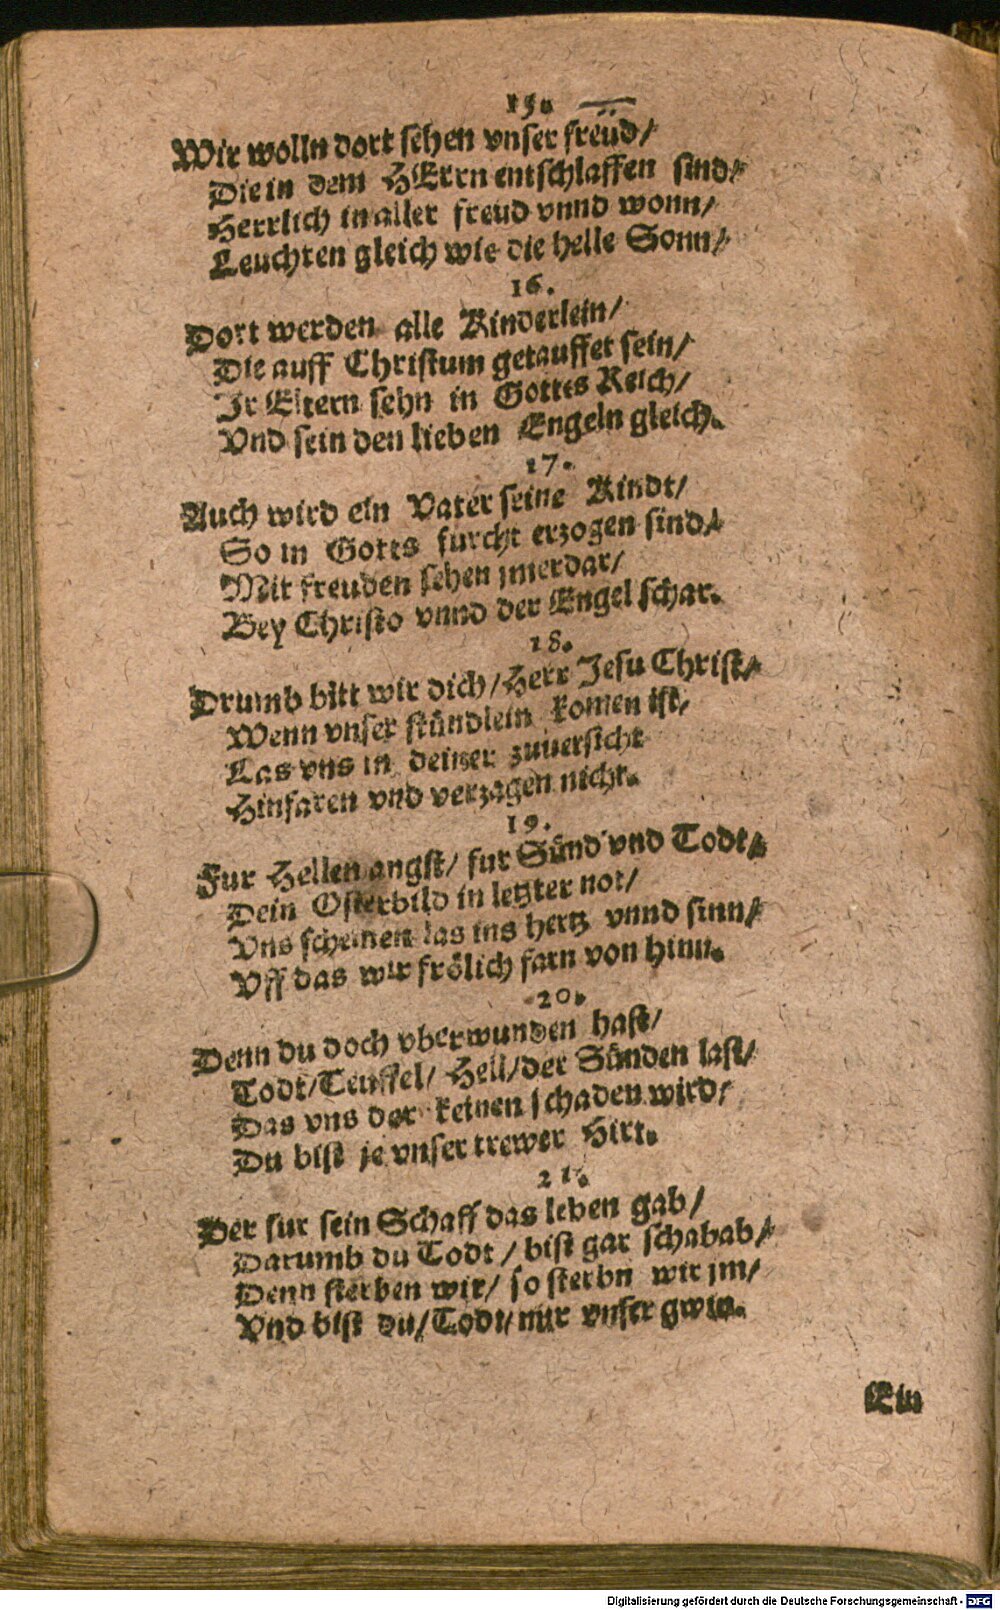 15.
Wir wolln dort sehen vnser freüd/
Die in dem HErrn entschlaffen sind/
Herrlich in aller freud vnnd wonn/
Leuchten gleich wie die helle Sonn/
16.
Dort werden alle Kinderlein/
Die auff Christum getauffet sein/
Jr Eltern sehn in Gottes Reich/
Vnd sein den lieben Engeln gleich.
17.
Auch wird ein Vater seine Kindt/
So in Gotts furcht erzogen sind/
Mit freuden sehen jmerdar/
Bey Christo vnnd der Engel schar.
18.
Drumb bitt wir dich/ Herr Jesu Christ/
Wenn vnser stündlein komen ist/
Las vns in deiner zuuersicht
Hinfaren vnd verzagen nicht.
19.
Fur Hellen angst/ fur Sünd vnd Todt/
Dein Osterbild in letzter not/
Vns scheinen las ins hertz vnnd sinn/
Vff das wir frölich farn von hinn.
20.
Denn du doch vberwunden hast/
Todt/ Teuffel/ Hell/ der Sünden last/
Das vns der keinen schaden wird/
Du bist je vnser trewer Hirt.
21.
Der fur sein Schaff das leben gab/
Darumb du Todt / bist gar schabab/
Denn sterben wir/ so sterbn wir jm/
Vnd bist du/ Todt/ nur vnser gwin.
Ein
Digitalisierung gefördert durch die Deutsche Forschungsgemeinschaft - DFG